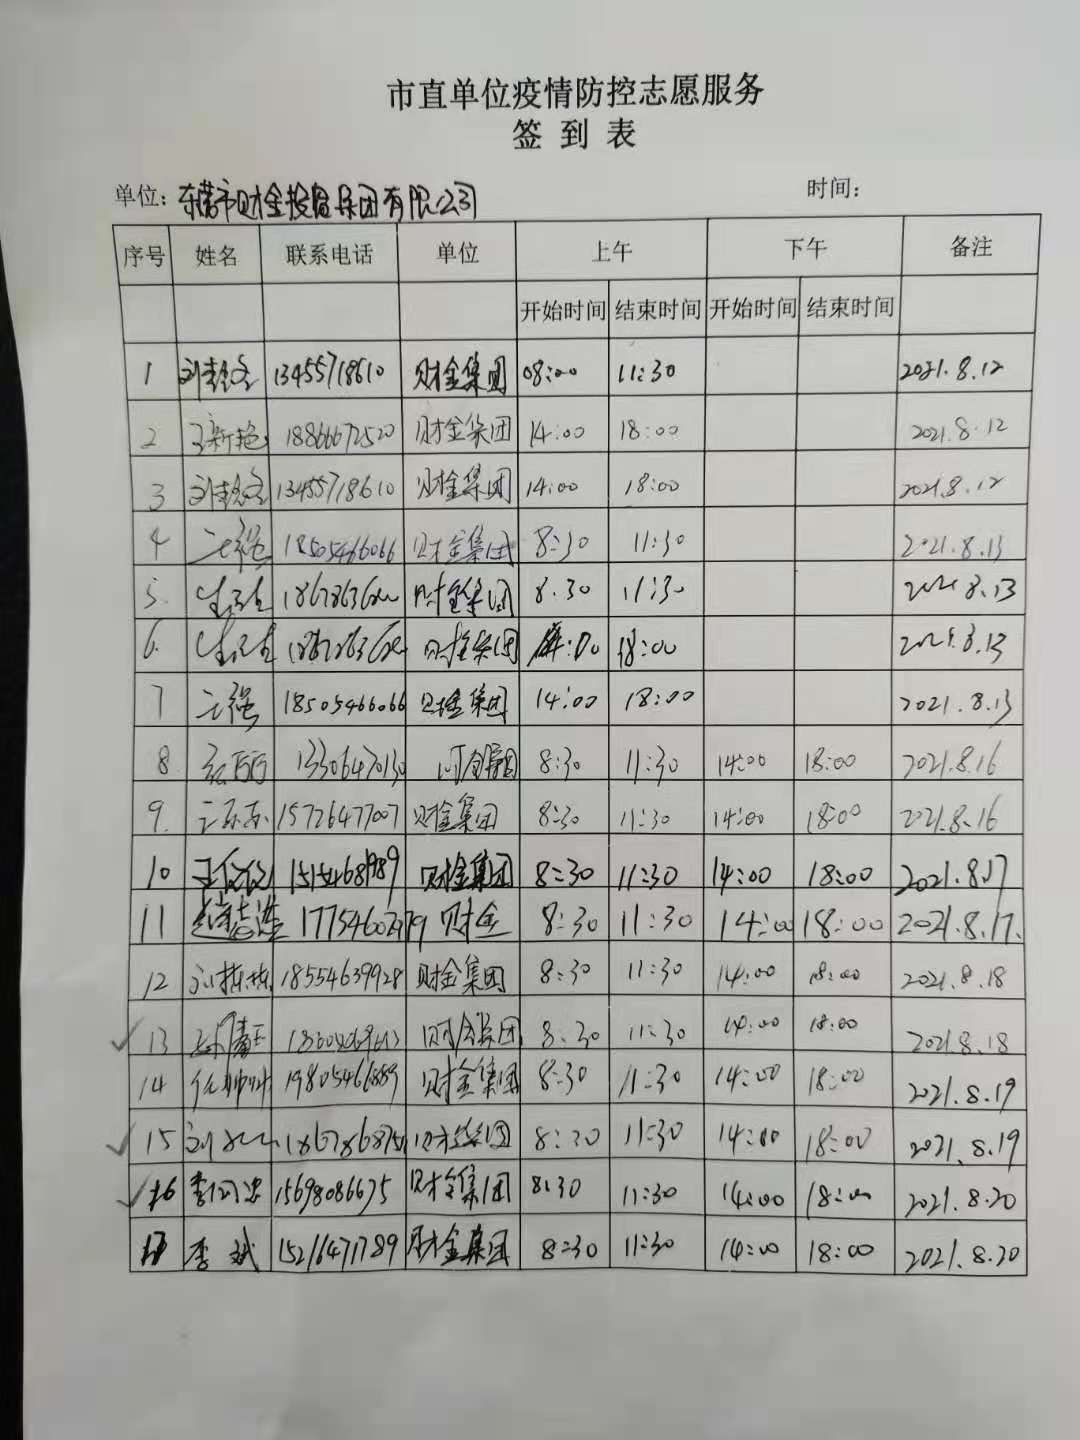 市直单位疫情防控志愿服务
签 到 表
单位：东营市财金投资集团有限公司 时间：
序号 姓名 联系电话 单位 上午 下午 备注
开始时间 结束时间 开始时间 结束时间
1 13455718610 财金集团 08:00 11:30 2021.8.12
2 18866672520 财金集团 14:00 18:00 2021.8.12
3 13455718610 财金集团 14:00 18:00 2021.8.12
4 王强 18505466066 财金集团 8:30 11:30 2021.8.13
5. 财金集团 8.30 11:30 2021.8.13
6. 财金集团 18:00 2021.8.13
7 王强 18505466066 财金集团 14:00 18:00 2021.8.13
8 13306470130 财金集团 8:30 11:30 14:00 18:00 2021.8.16
9. 15726477007 财金集团 8:30 11:30 14:00 18:00 2021.8.16
10 15154681989 财金集团 8:30 11:30 14:00 18:00 2021.8.17
11 财金 8:30 11:30 14:00 18:00 2021.8.17.
12 18554639928 财金集团 8:30 11:30 14:00 18:00 2021.8.18
13 财金集团 8:30 11:30 14:00 18:00 2021.8.18
14 19805466889 财金集团 8:30 11:30 14:00 18:00 2021.8.19
15 财金集团 8:30 11:30 14:00 18:00 2021.8.19
16 15698086675 财金集团 8:30 11:30 14:00 18:00 2021.8.20
17 李斌 15216471789 财金集团 8:30 11:30 14:00 18:00 2021.8.20